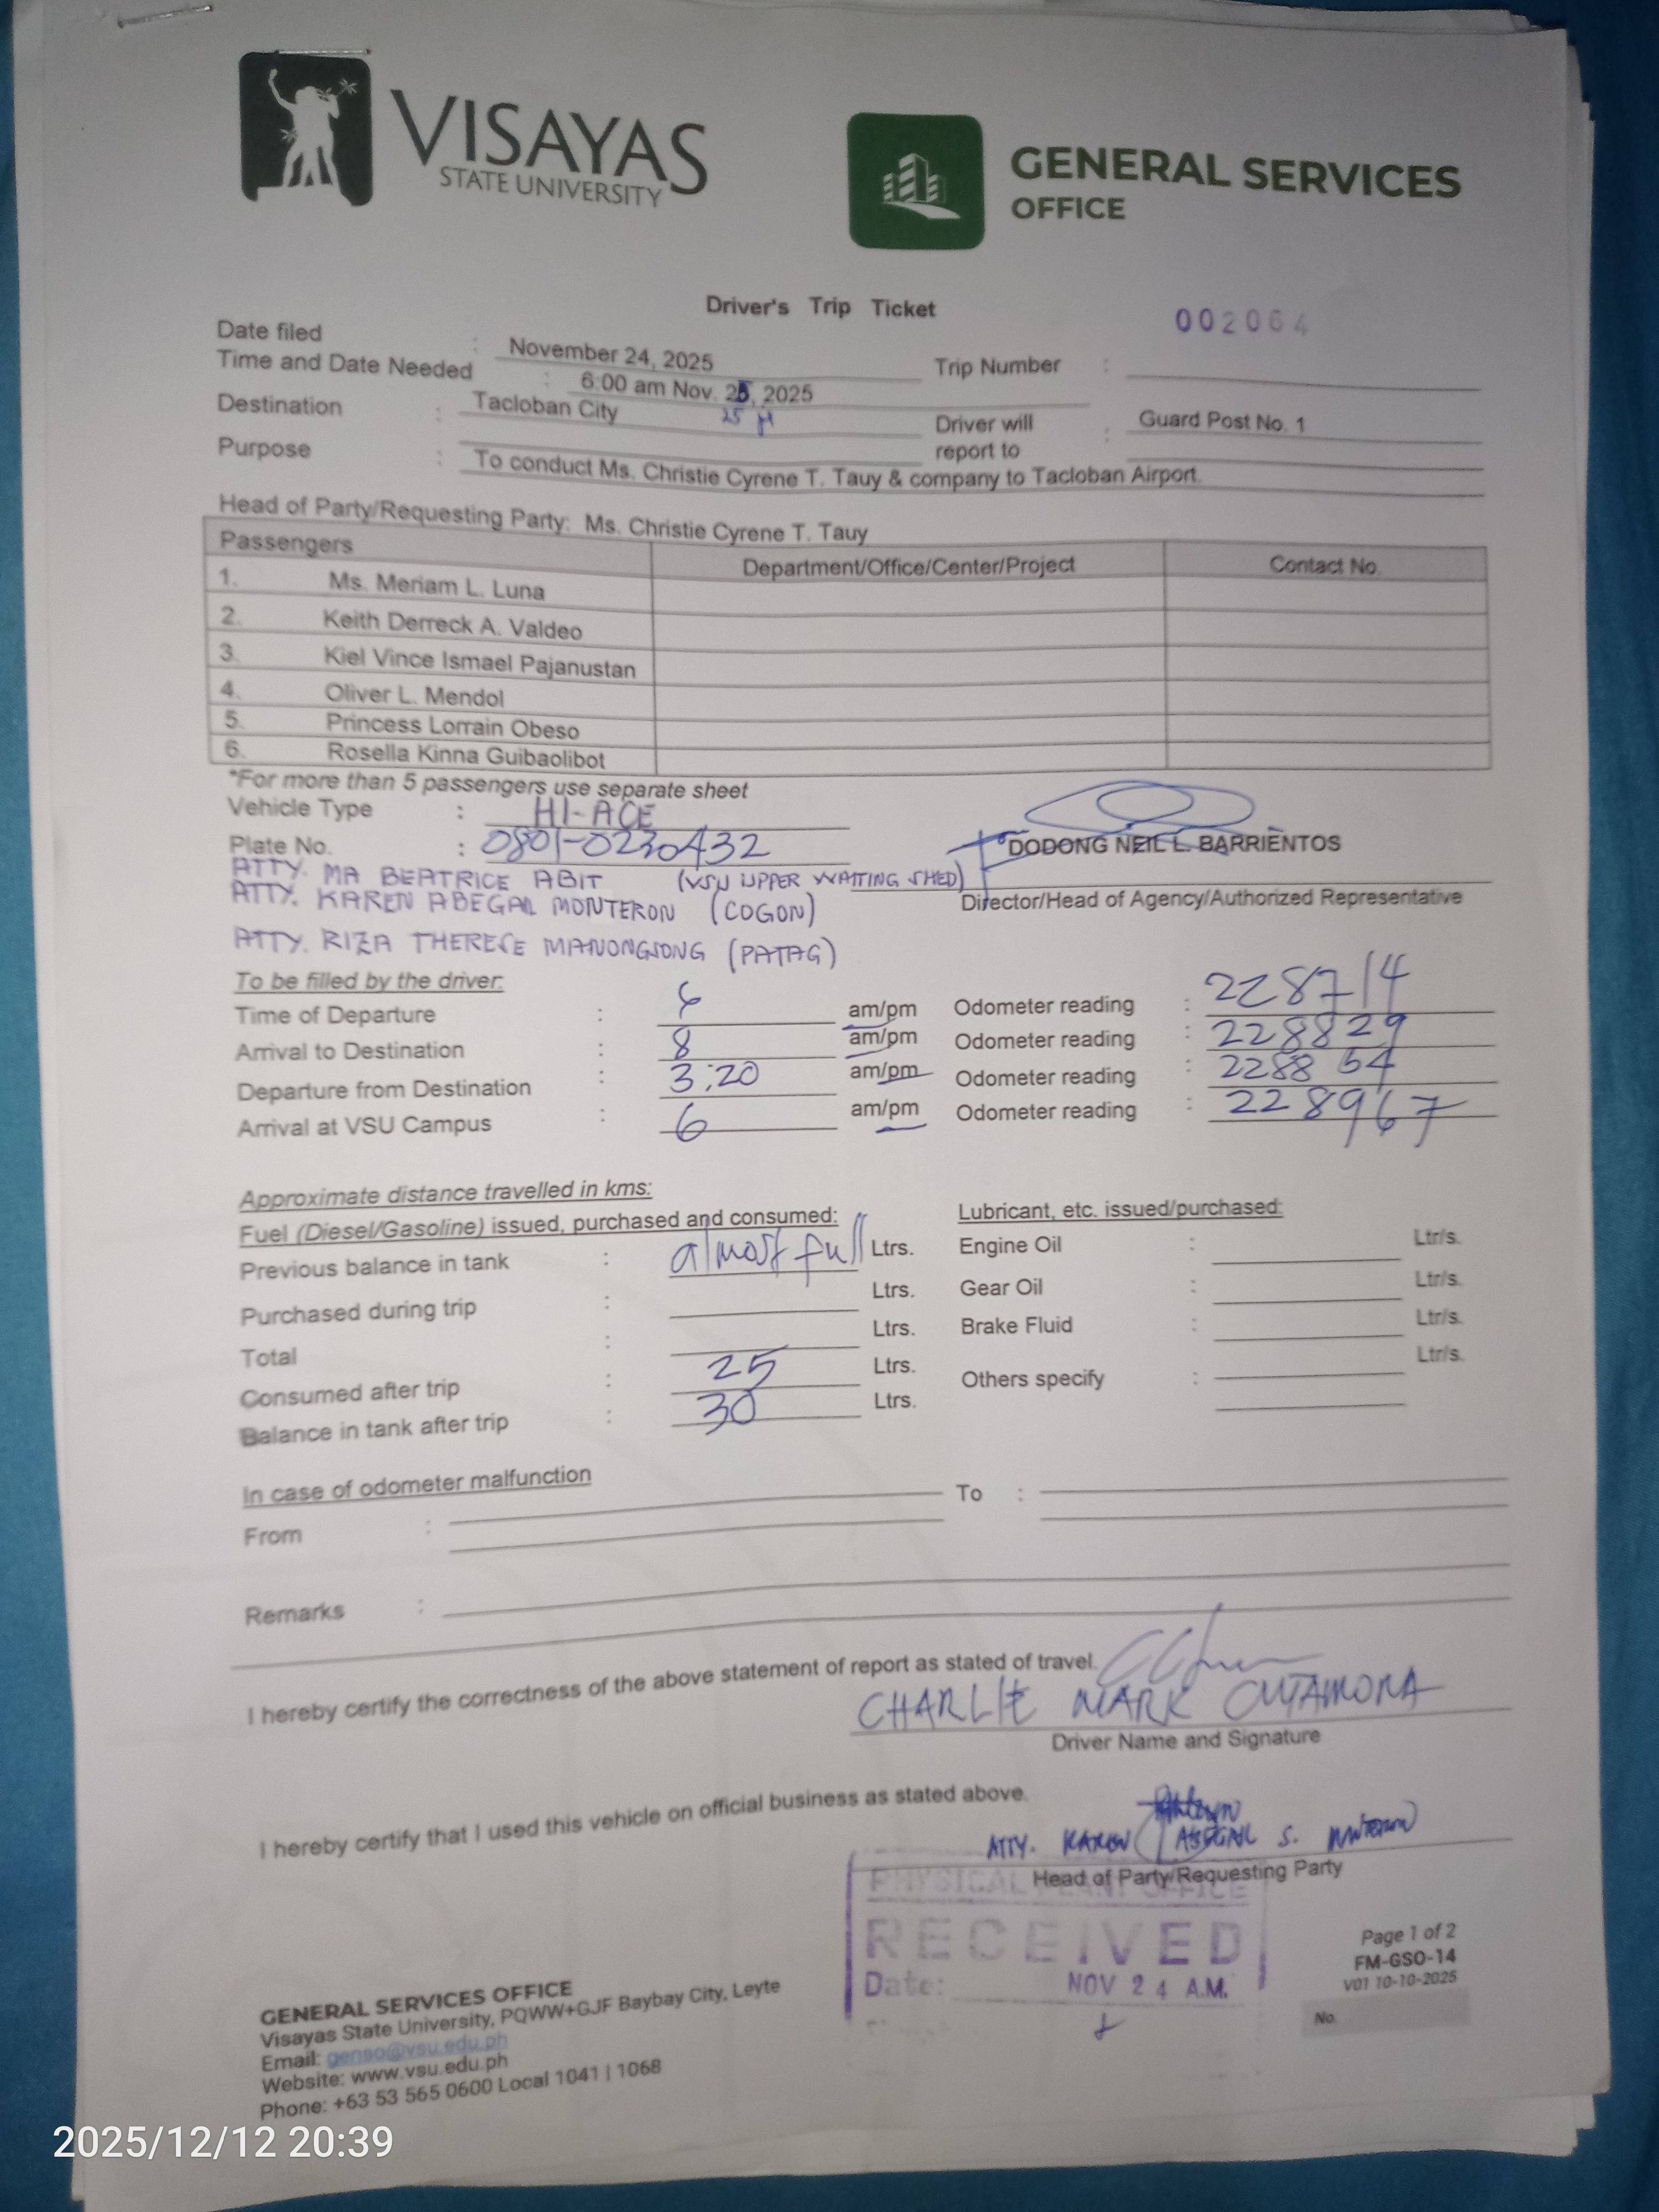 VISAYAS
STATE UNIVERSITY
GENERAL SERVICES
OFFICE
Driver's Trip Ticket
002064
Date filed : November 24, 2025
Trip Number :
Time and Date Needed : 6:00 am Nov. 25, 2025
25
Destination : Tacloban City
Driver will report to : Guard Post No. 1
Purpose : To conduct Ms. Christie Cyrene T. Tauy & company to Tacloban Airport.
Head of Party/Requesting Party: Ms. Christie Cyrene T. Tauy
Passengers Department/Office/Center/Project Contact No.
1. Ms. Meriam L. Luna
2. Keith Derreck A. Valdeo
3. Kiel Vince Ismael Pajanustan
4. Oliver L. Mendol
5. Princess Lorrain Obeso
6. Rosella Kinna Guibaolibot
*For more than 5 passengers use separate sheet
Vehicle Type : HI-ACE
Plate No. : 0801-0230432
DODONG NEIL L. BARRIENTOS
Director/Head of Agency/Authorized Representative
ATTY. MA BEATRICE ABIT (VSU UPPER WAITING SHED)
ATTY. KAREN ABEGAIL MONTERON (COGON)
ATTY. RIZA THERESE MANONGSONG (PATAG)
To be filled by the driver:
Time of Departure : 6 am/pm Odometer reading : 228714
Arrival to Destination : 8 am/pm Odometer reading : 228829
Departure from Destination : 3:20 am/pm Odometer reading : 228854
Arrival at VSU Campus : 6 am/pm Odometer reading : 228967
Approximate distance travelled in kms:
Fuel (Diesel/Gasoline) issued, purchased and consumed: Lubricant, etc. issued/purchased:
Previous balance in tank : almost full Ltrs. Engine Oil : Ltr/s.
Purchased during trip : Ltrs. Gear Oil : Ltr/s.
Total : Ltrs. Brake Fluid : Ltr/s.
Consumed after trip : 25 Ltrs. Others specify : Ltr/s.
Balance in tank after trip : 30 Ltrs.
In case of odometer malfunction
From : To :
Remarks :
I hereby certify the correctness of the above statement of report as stated of travel.
CHARLIE MARK CUTAMORA
Driver Name and Signature
I hereby certify that I used this vehicle on official business as stated above.
ATTY. KAREN ABEGAIL S. MONTERON
Head of Party/Requesting Party
PHYSICAL PLANT OFFICE
RECEIVED
Date: NOV 24 A.M.
Page 1 of 2
FM-GSO-14
V01 10-10-2025
No.
GENERAL SERVICES OFFICE
Visayas State University, PQWW+GJF Baybay City, Leyte
Email: genso@vsu.edu.ph
Website: www.vsu.edu.ph
Phone: +63 53 565 0600 Local 1041 | 1068
2025/12/12 20:39